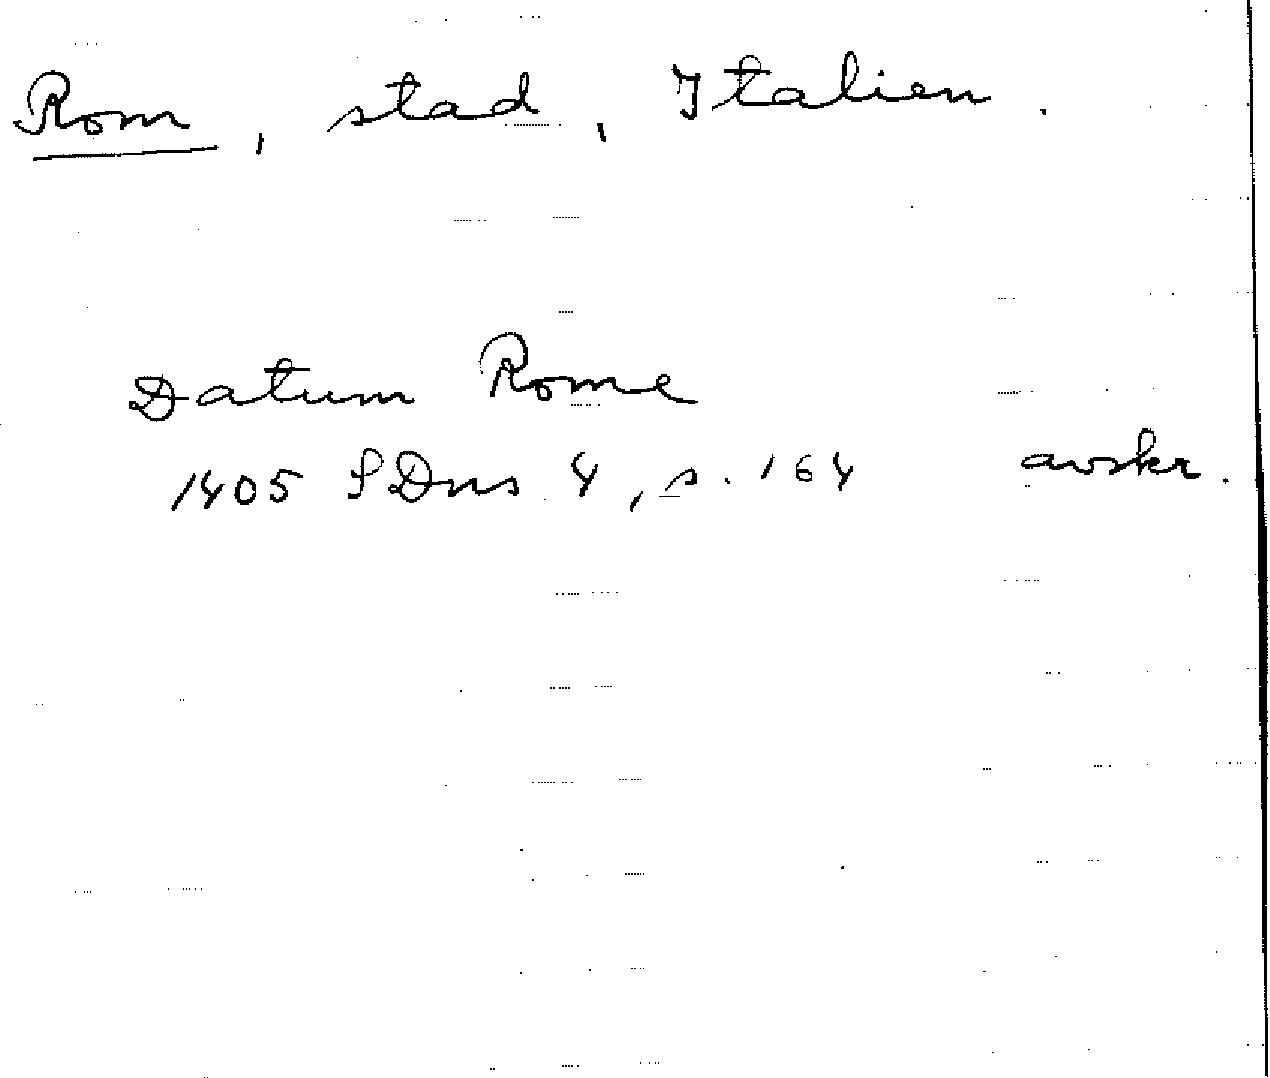 Rom, stad, Italien.
Datum Rome
1405 SDns 4, s. 164 avskr.